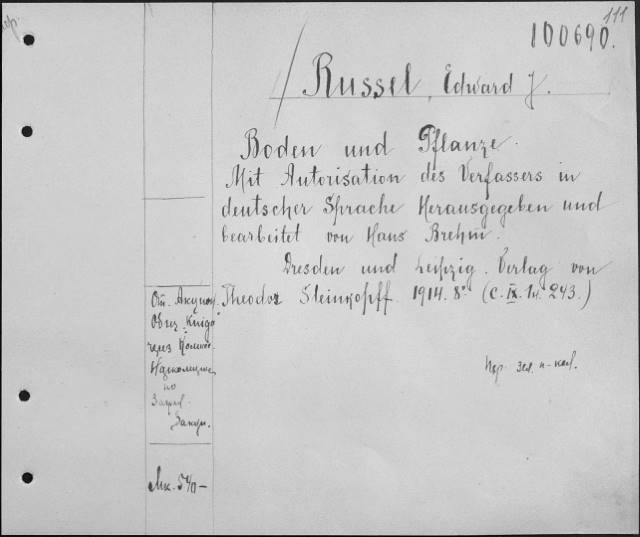 111
100690.
Russel, Edward J.
Boden und Pflanze.
Mit Autorisation des Verfassers in
deutscher Sprache Herausgegeben und
bearbeitet von Hans Brehm.
Dresden und Leipzig. Verlag von
Theodor Steinkopff. 1914. 8° (C. IX. 1н. 243.)
От. Акцион.
через
по
Закуп.
Мк. 540-